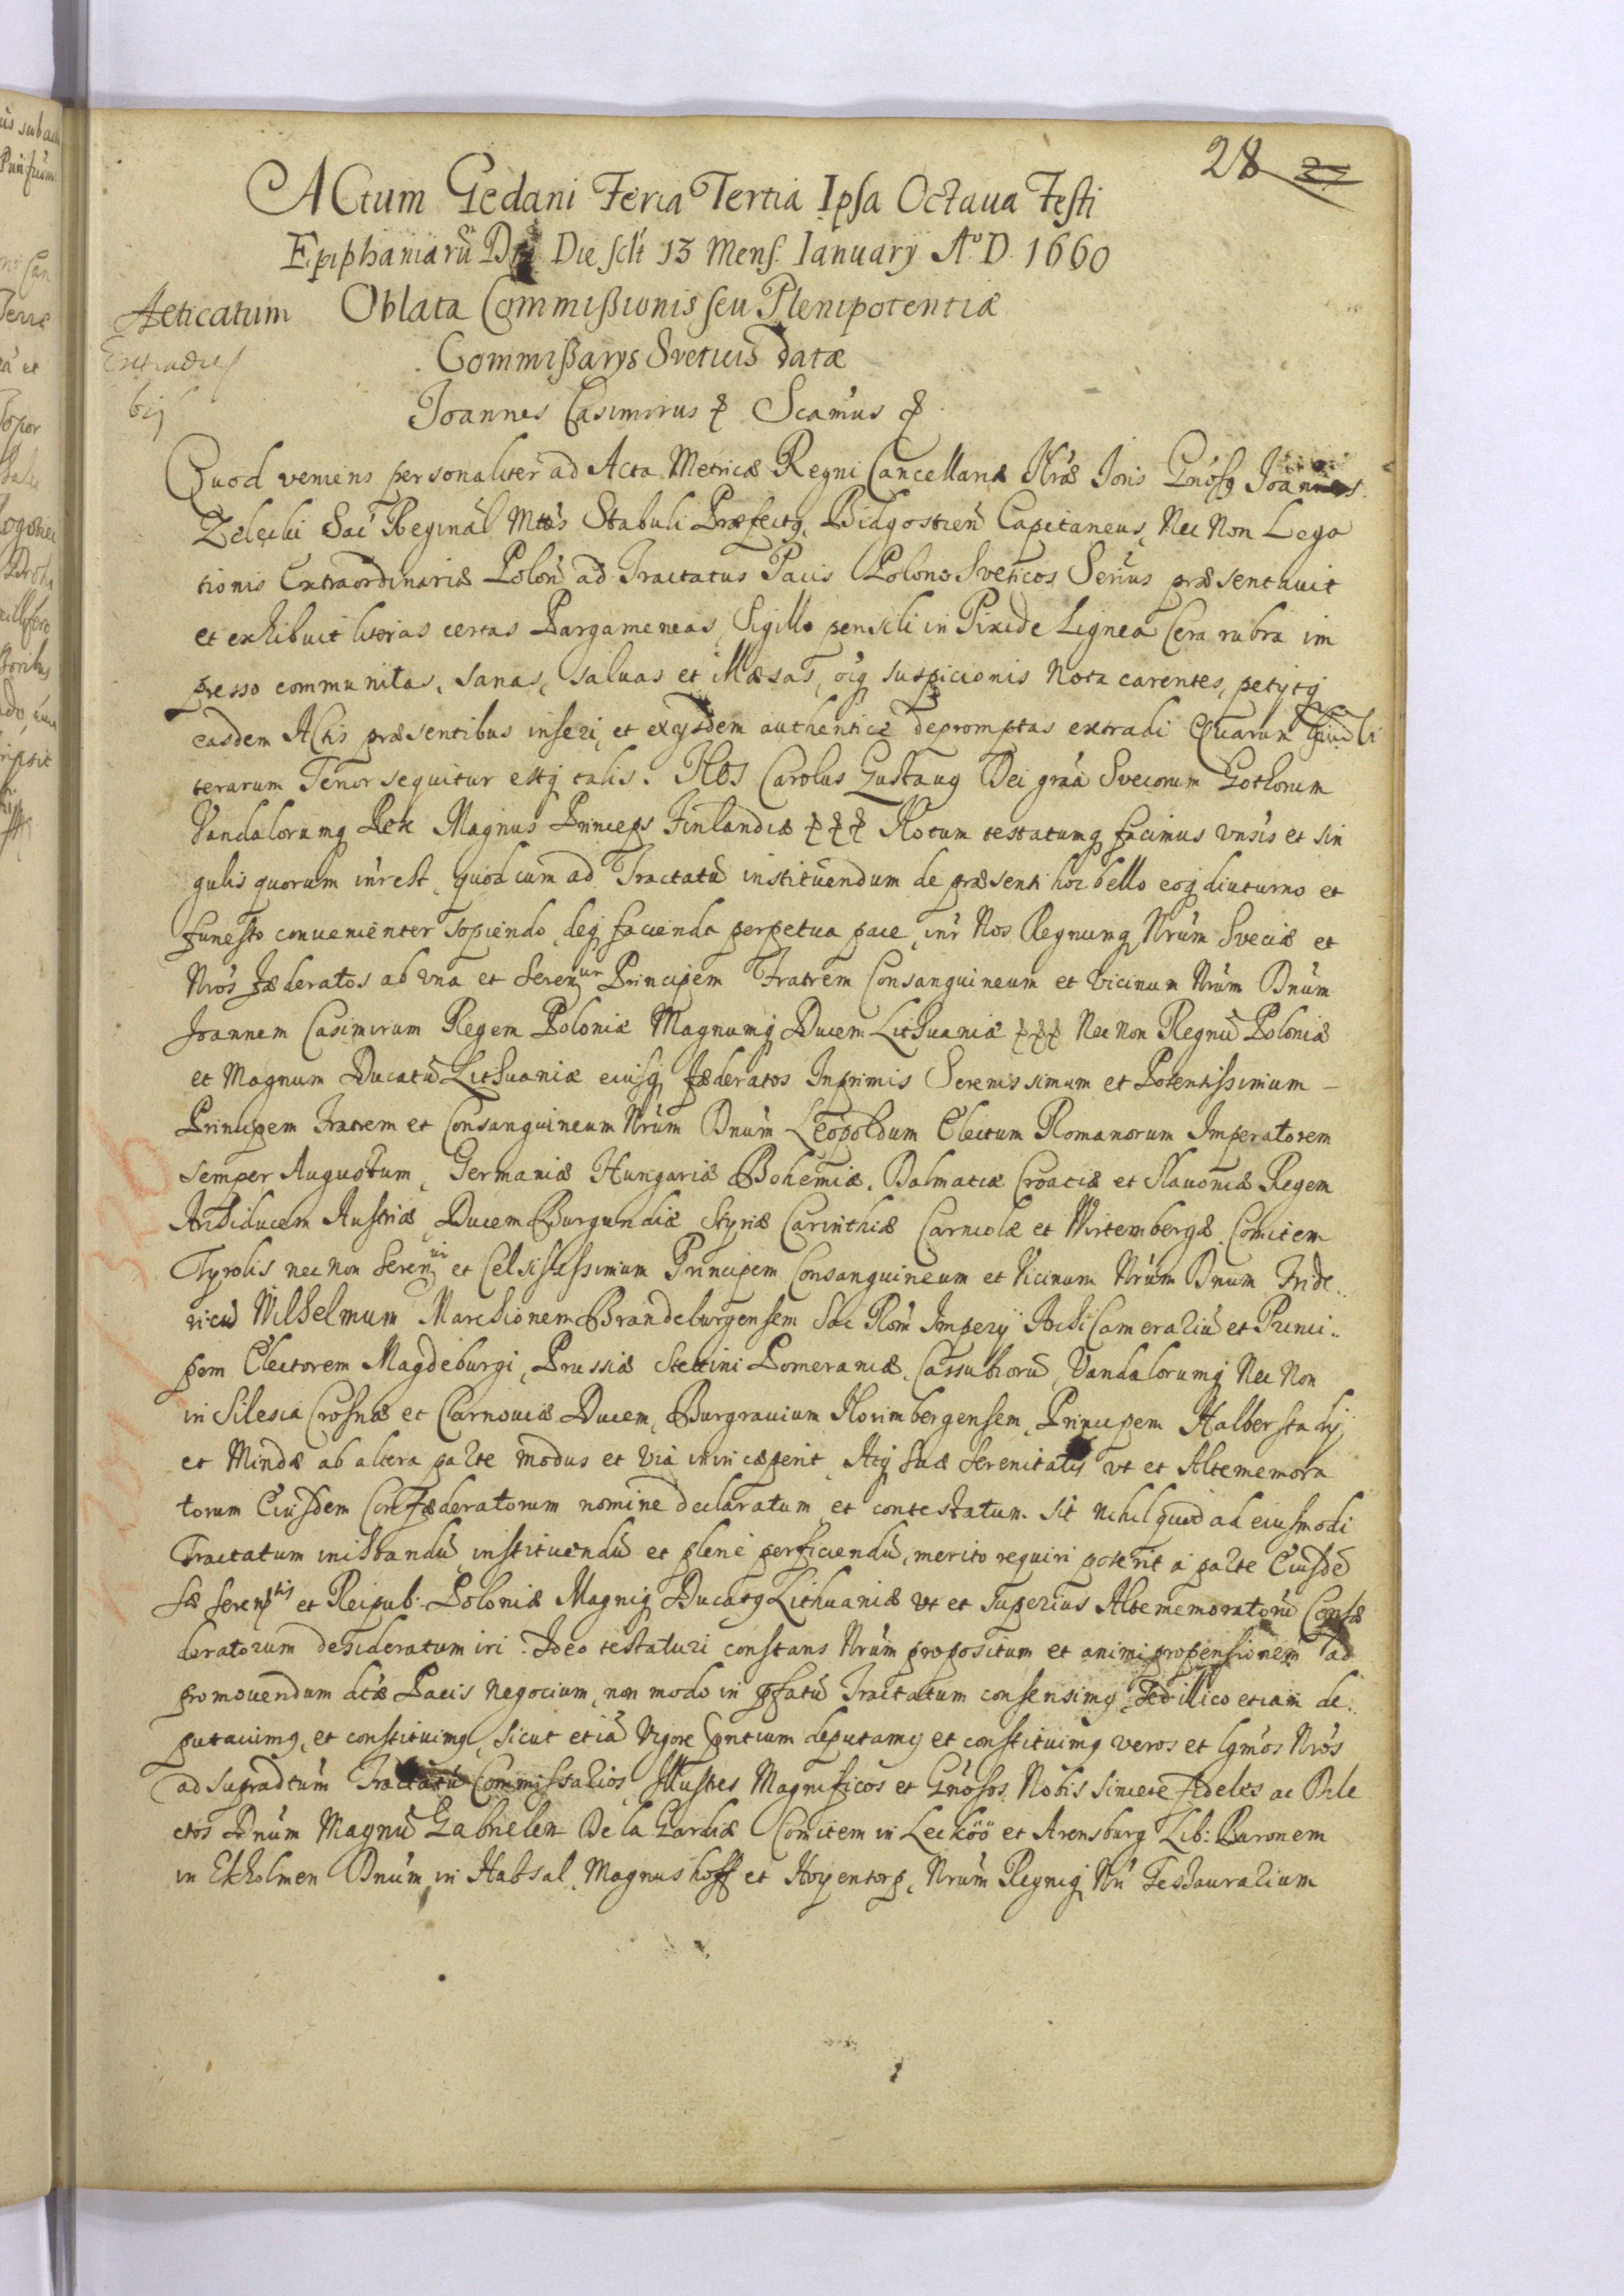 28 27
ACtum Gedani Feria Tertia Ipsa Octaua Festi
Epiphaniarū Dni Die sclt 13 Mens. Ianuarÿ Aº D. 1660
Aeticatum Oblata Commißionis seu Plenipotentiæ
Extradit Commißarÿs Sveticis datæ
bis
Joannes Casimirus & Scamus &
Quod veniens personaliter ad Acta Metricæ Regni Cancellariæ Nræ Ioris Gnosq Joannes
Zelecki Sac Reginal Mttis Stabuli Præfectq, Bidgostien Capitaneus, Nec Non Lega
tionis Extraordinariæ Polon ad Tractatus Pacis Polono Sveticos Serius præsentauit
et exhibuit literas certas Pargameneas, Sigillo pensili in Pixide Lignea Cera rubra im
presso communitas, sanas, saluas et illæsas, oiq suspicionis Nota carentes, petytq
easdem Actis præsentibus inseri, et exÿsdem authenticè depromptas extradi Quarum quid li
terarum Tenor sequitur estq talis. NOS Carolus Gustauq Dei graa Svecorum Gothorum
Vandalorumq Rex Magnus Princeps Finlandiæ &&& Notum testatumq facimus vnsis et sin
gulis quorum inrest, quod cum ad Tractatū instituendum de præsenti hoc bello eoq diuturno et
funesto conuenienter sopiendo, deq facienda perpetua pace, inr Nos Regnumq Nrum Sveciæ et
Nros Fæderatos ab vna et Seren Principem Fratrem Consanguineum et Vicinum Nrum Dnum
Joannem Casimirum Regem Poloniæ Magnumq Ducem Lithuaniæ &&& Nec non Regnū Poloniæ
et Magnum Ducatū Lithuaniæ eiusq fæderatos Inprimis Serenissimum et Potentissimum –
Principem Fratrem et Consanguineum Nrum Dnum Leopoldum Electum Romanorum Imperatorem
semper Augustum, Germaniæ Hungariæ Bohemiæ, Dalmatiæ Croatiæ et Slauoniæ Regem
Archiducem Austriæ, Ducem Burgundiæ Styriæ Carinthiæ Carniolæ et Wirtembergæ, Comitem
Tyrolis nec non Seren et Celsissimum Principem Consanguineum et Vicinum Nrum Dnum Fride..
ricū Wilhelmum Marchionem Brandeburgensem Sac Rom Imperÿ Archi Camerariū et Princi..
pem Electorem Magdeburgi, Prussiæ Stettini Pomeraniæ, Cassubiorū, Vandalorumq Nec Non
in Silesia Crosnæ et Carnouiæ Ducem, Burgrauium Norimbergensem, Principem Halberstadÿ
et Mindæ ab altera parte modus et via iniri cæperit, Atq suæ Serenitatis vt et Altememora
torum Eiusdem Confæderatorum nomine declaratum et contestatum sit nihil quod ad eiusmodi
Tractatum inchoandū instituendū et plene perficiendū, merito requiri poterit à parte Eiusdē
sæ seren et Reipub: Poloniæ Magniq Ducatq Lithuaniæ vt et superius Altememoratorū Confæ
deratorum desideratum iri. Ideo testaturi constans Nrum propositum et animi propensionem ad
promouendum dtæ Pacis Negocium, non modo in pfatū Tractatum consensimq, sed illico etiam de..
putauimq, et constituimq, sicut etiā Vigore pntium deputamq et constituimq veros et lgmos Nros
ad supradtum Tractatū Commissarios Illustres Magnificos et Gnosos Nobis sincere fideles ac Dile
ctos Dnum Magnū Gabrielem De la Gardiæ Comitem in Leckoö et Arensburg Lib: Baronem
in Ekholmen Dnum in Habsal, Magnushoff et Hoyentorp, Nrum Regniq Nri Tesaurarium